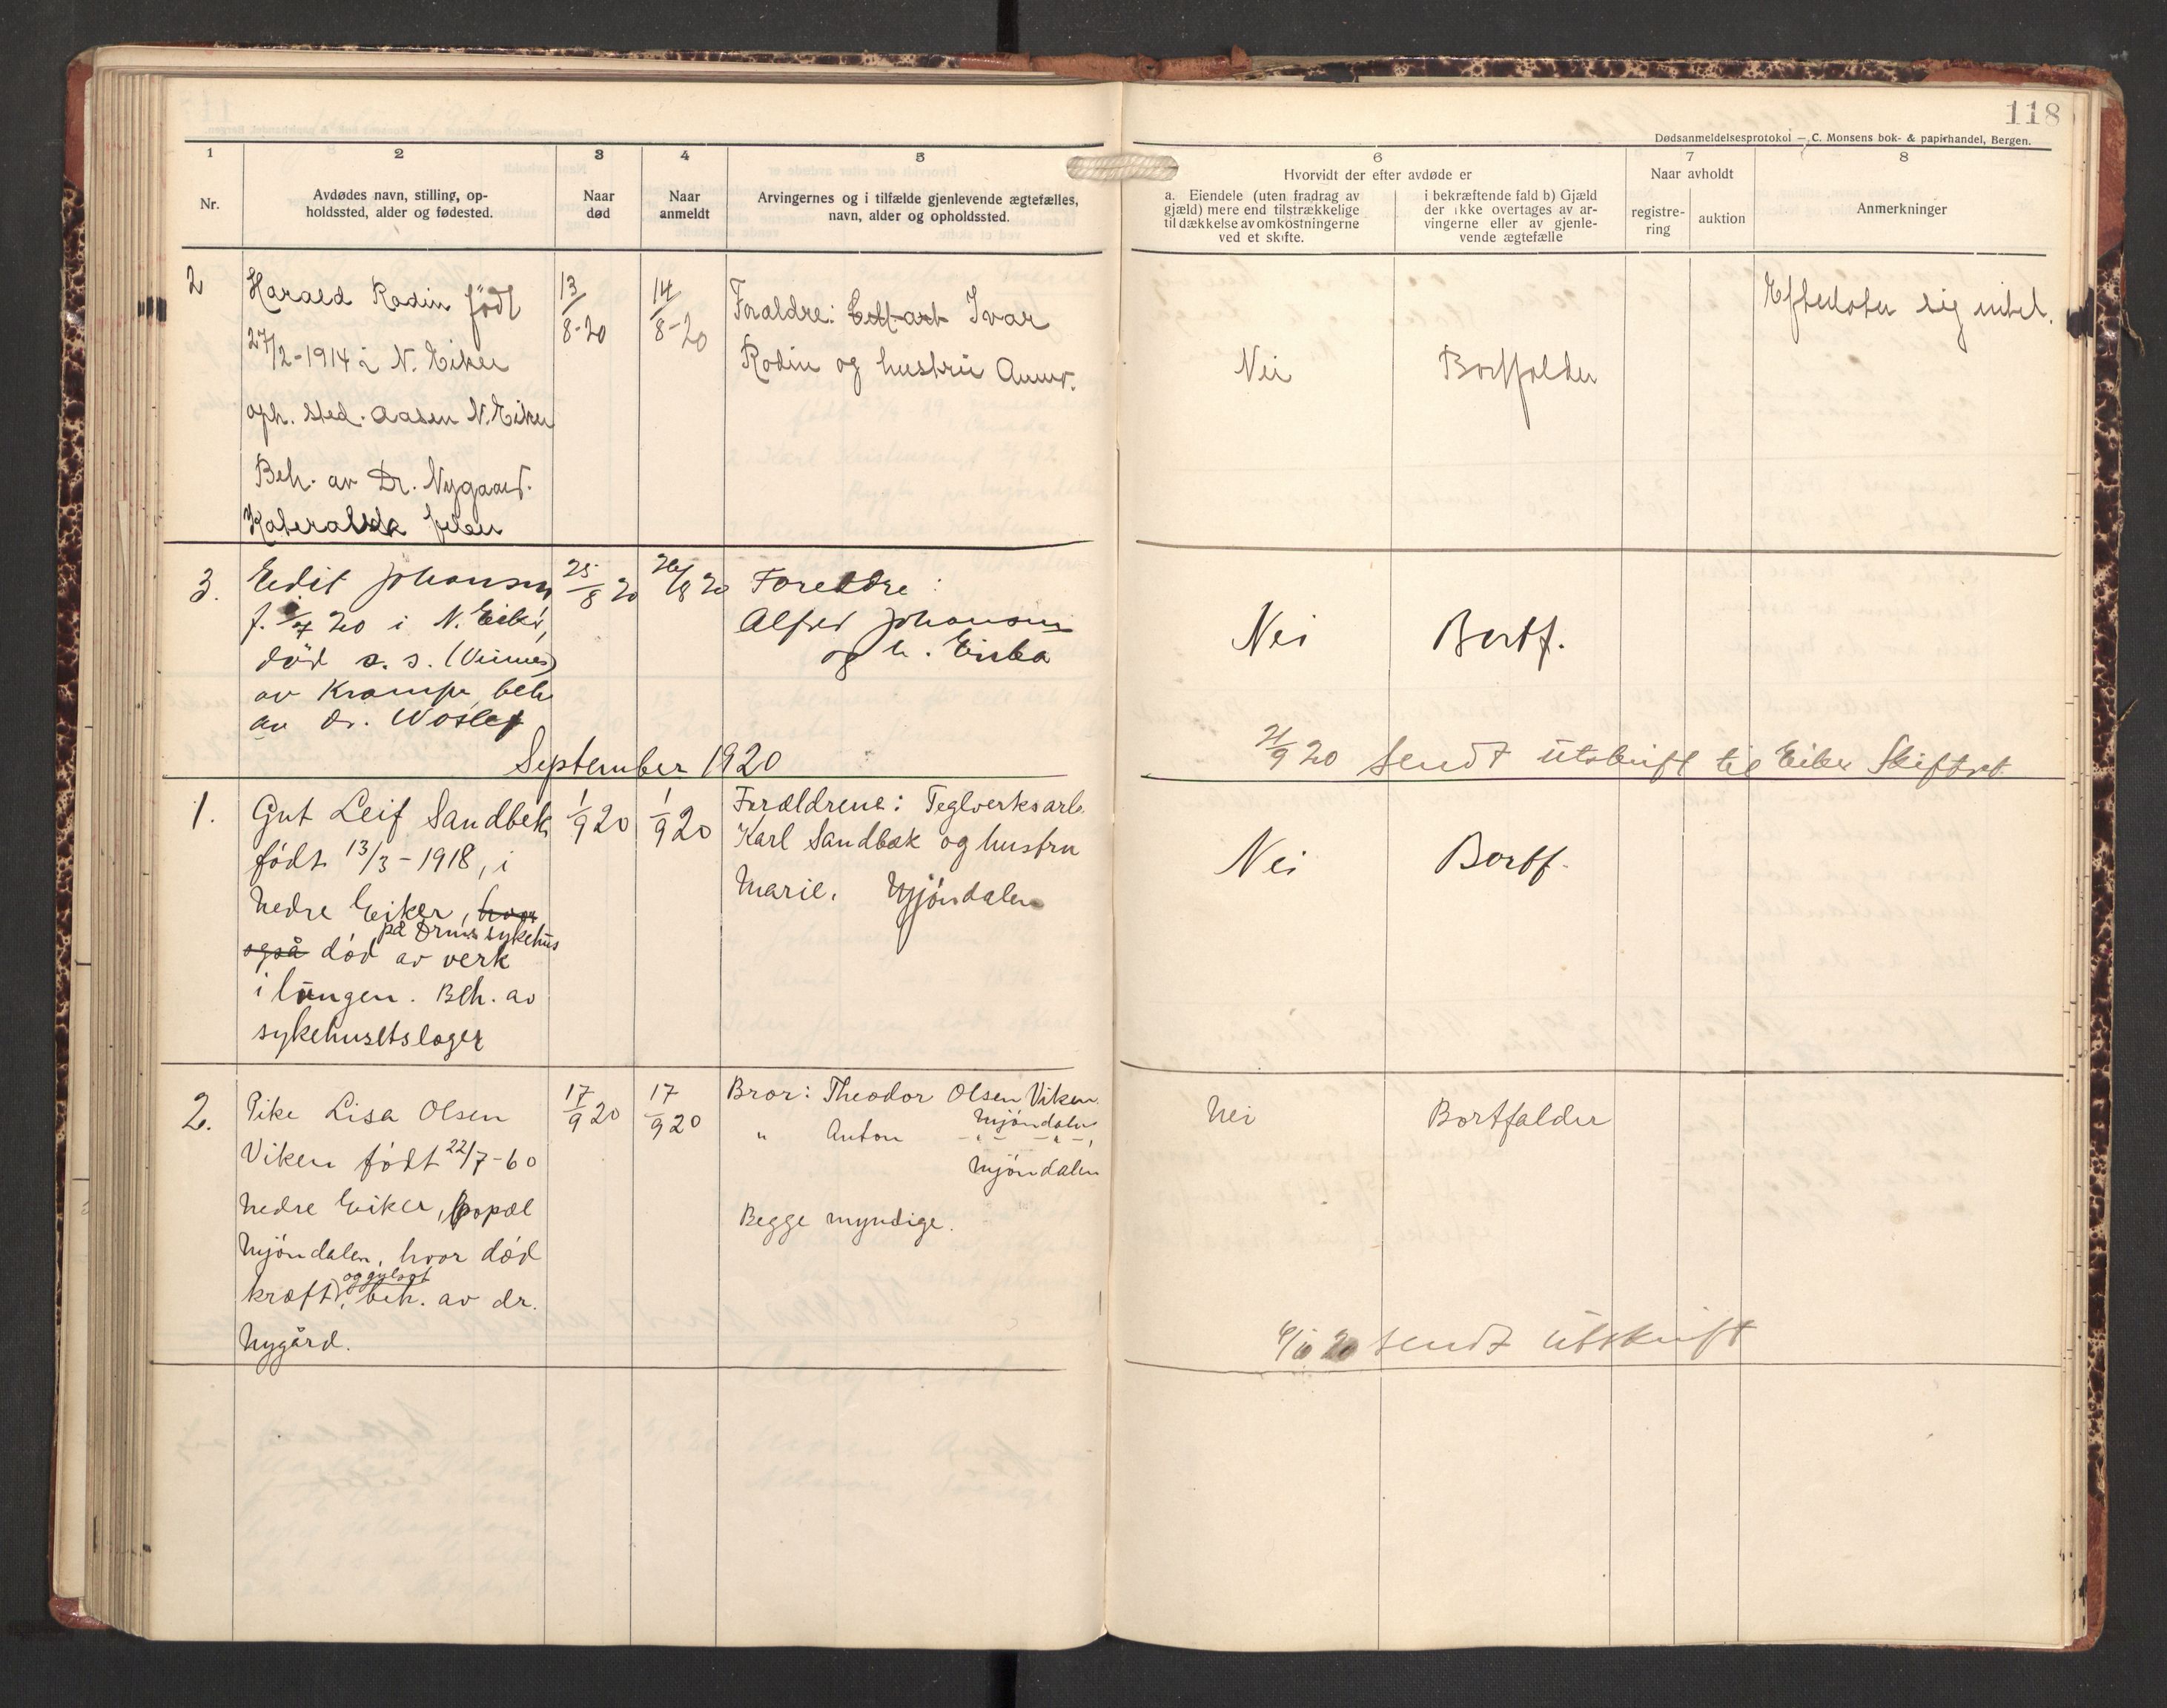 118
Dødsanmeldelsesprotokol — C. Monsens bok- & papirhandel, Bergen.
1
2
3
4
5
6
7
8
Nr.
Avdødes navn, stilling, op-
holdssted, alder og fødested.
Naar
død
Naar
anmeldt
Arvingernes og i tilfælde gjenlevende ægtefælles,
navn, alder og opholdssted.
Hvorvidt der efter avdøde er
a. Eiendele (uten fradrag av
gjæld) mere end tilstrækkelige
til dækkelse av omkostningerne
ved et skifte.
i bekræftende fald b) Gjæld
der ikke overtages av ar-
vingerne eller av gjenle-
vende ægtefælle
Naar avholdt
registre-
ring
auktion
Anmerkninger
2
Harald Rodin født
27/2-1914 i N. Eiker
oph. sted. Aasen N. Eiker
Beh. av Dr. Nygaard.
13/8-20
14/8-20
Foraldre: Ivar
Rodin og hustru
Nei
Bortfalder
Efterlater sig intet.
3.
Edit Johansen
f. /7 20 i N. Eiker,
død s. s.
av Krampe, beh
av dr.
25/8 20
26/8 20
Foreldre:
Alfred Johansen
og h.
Nei
Bortf.
September 1920
21/9 20 sendt utskrift til Eiker Skifteret
1.
Gut Leif Sandbek
født 13/3-1918, i
Nedre Eiker, hvor
på Drms sykehus
også død av verk
i lungen. Beh. av
sykehusetslæger
1/9 20
1/9 20
Forældrene: Teglverksarb.
Karl Sandbæk og hustru
Marie. Mjöndalen
Nei
Bortf.
2.
Pike Lisa Olsen
Viken født 22/7-60
Nedre Eiker, bopæl
Mjöndalen, hvor død
og gulsot
kræft, beh. av dr.
Nygård.
17/9 20
17/9 20
Bror: Theodor Olsen Viken
Mjöndalen
" Anton -"- -"-,
Mjöndalen
Begge myndige.
Nei
Bortfalder
20 sendt utskrift